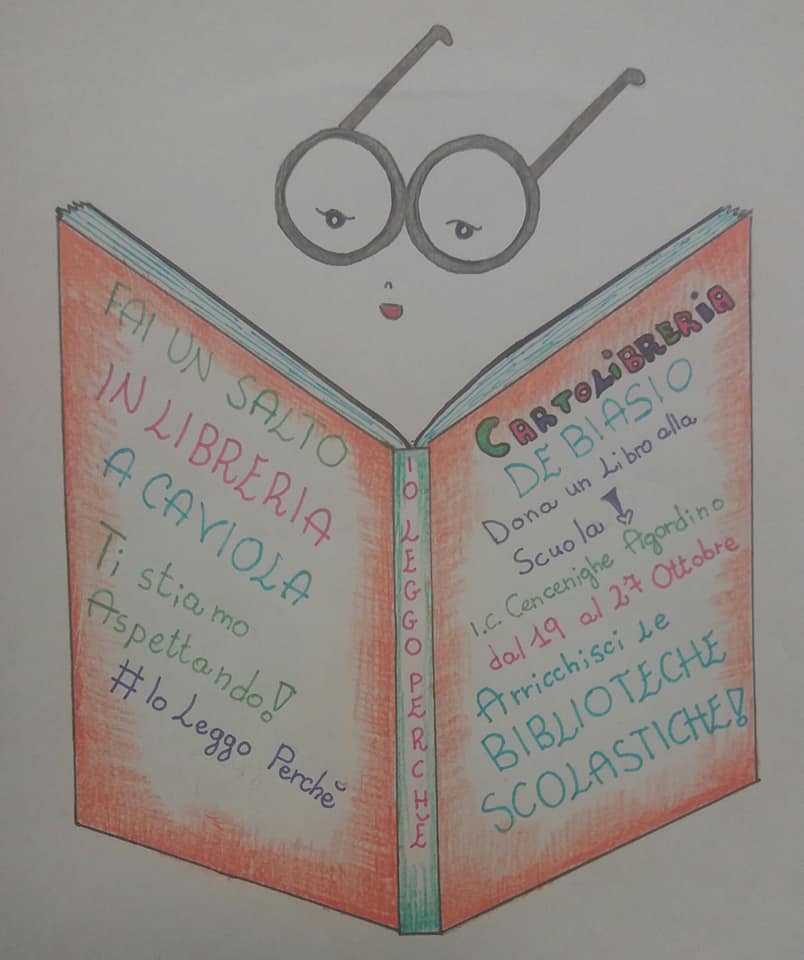 FAI UN SALTO
IN LIBRERIA
A CAVIOLA
Ti stiamo
Aspettando!
#Io Leggo Perchĕ
IO LEGGO PERCHĔ
CARTOLiBRERiA
DE BIASIO
Dona un Libro alla
Scuola!
I.C. Cencenighe Agordino
dal 19 al 27 Ottobre
Arricchisci le
BIBLIOTECHE
SCOLASTICHE!